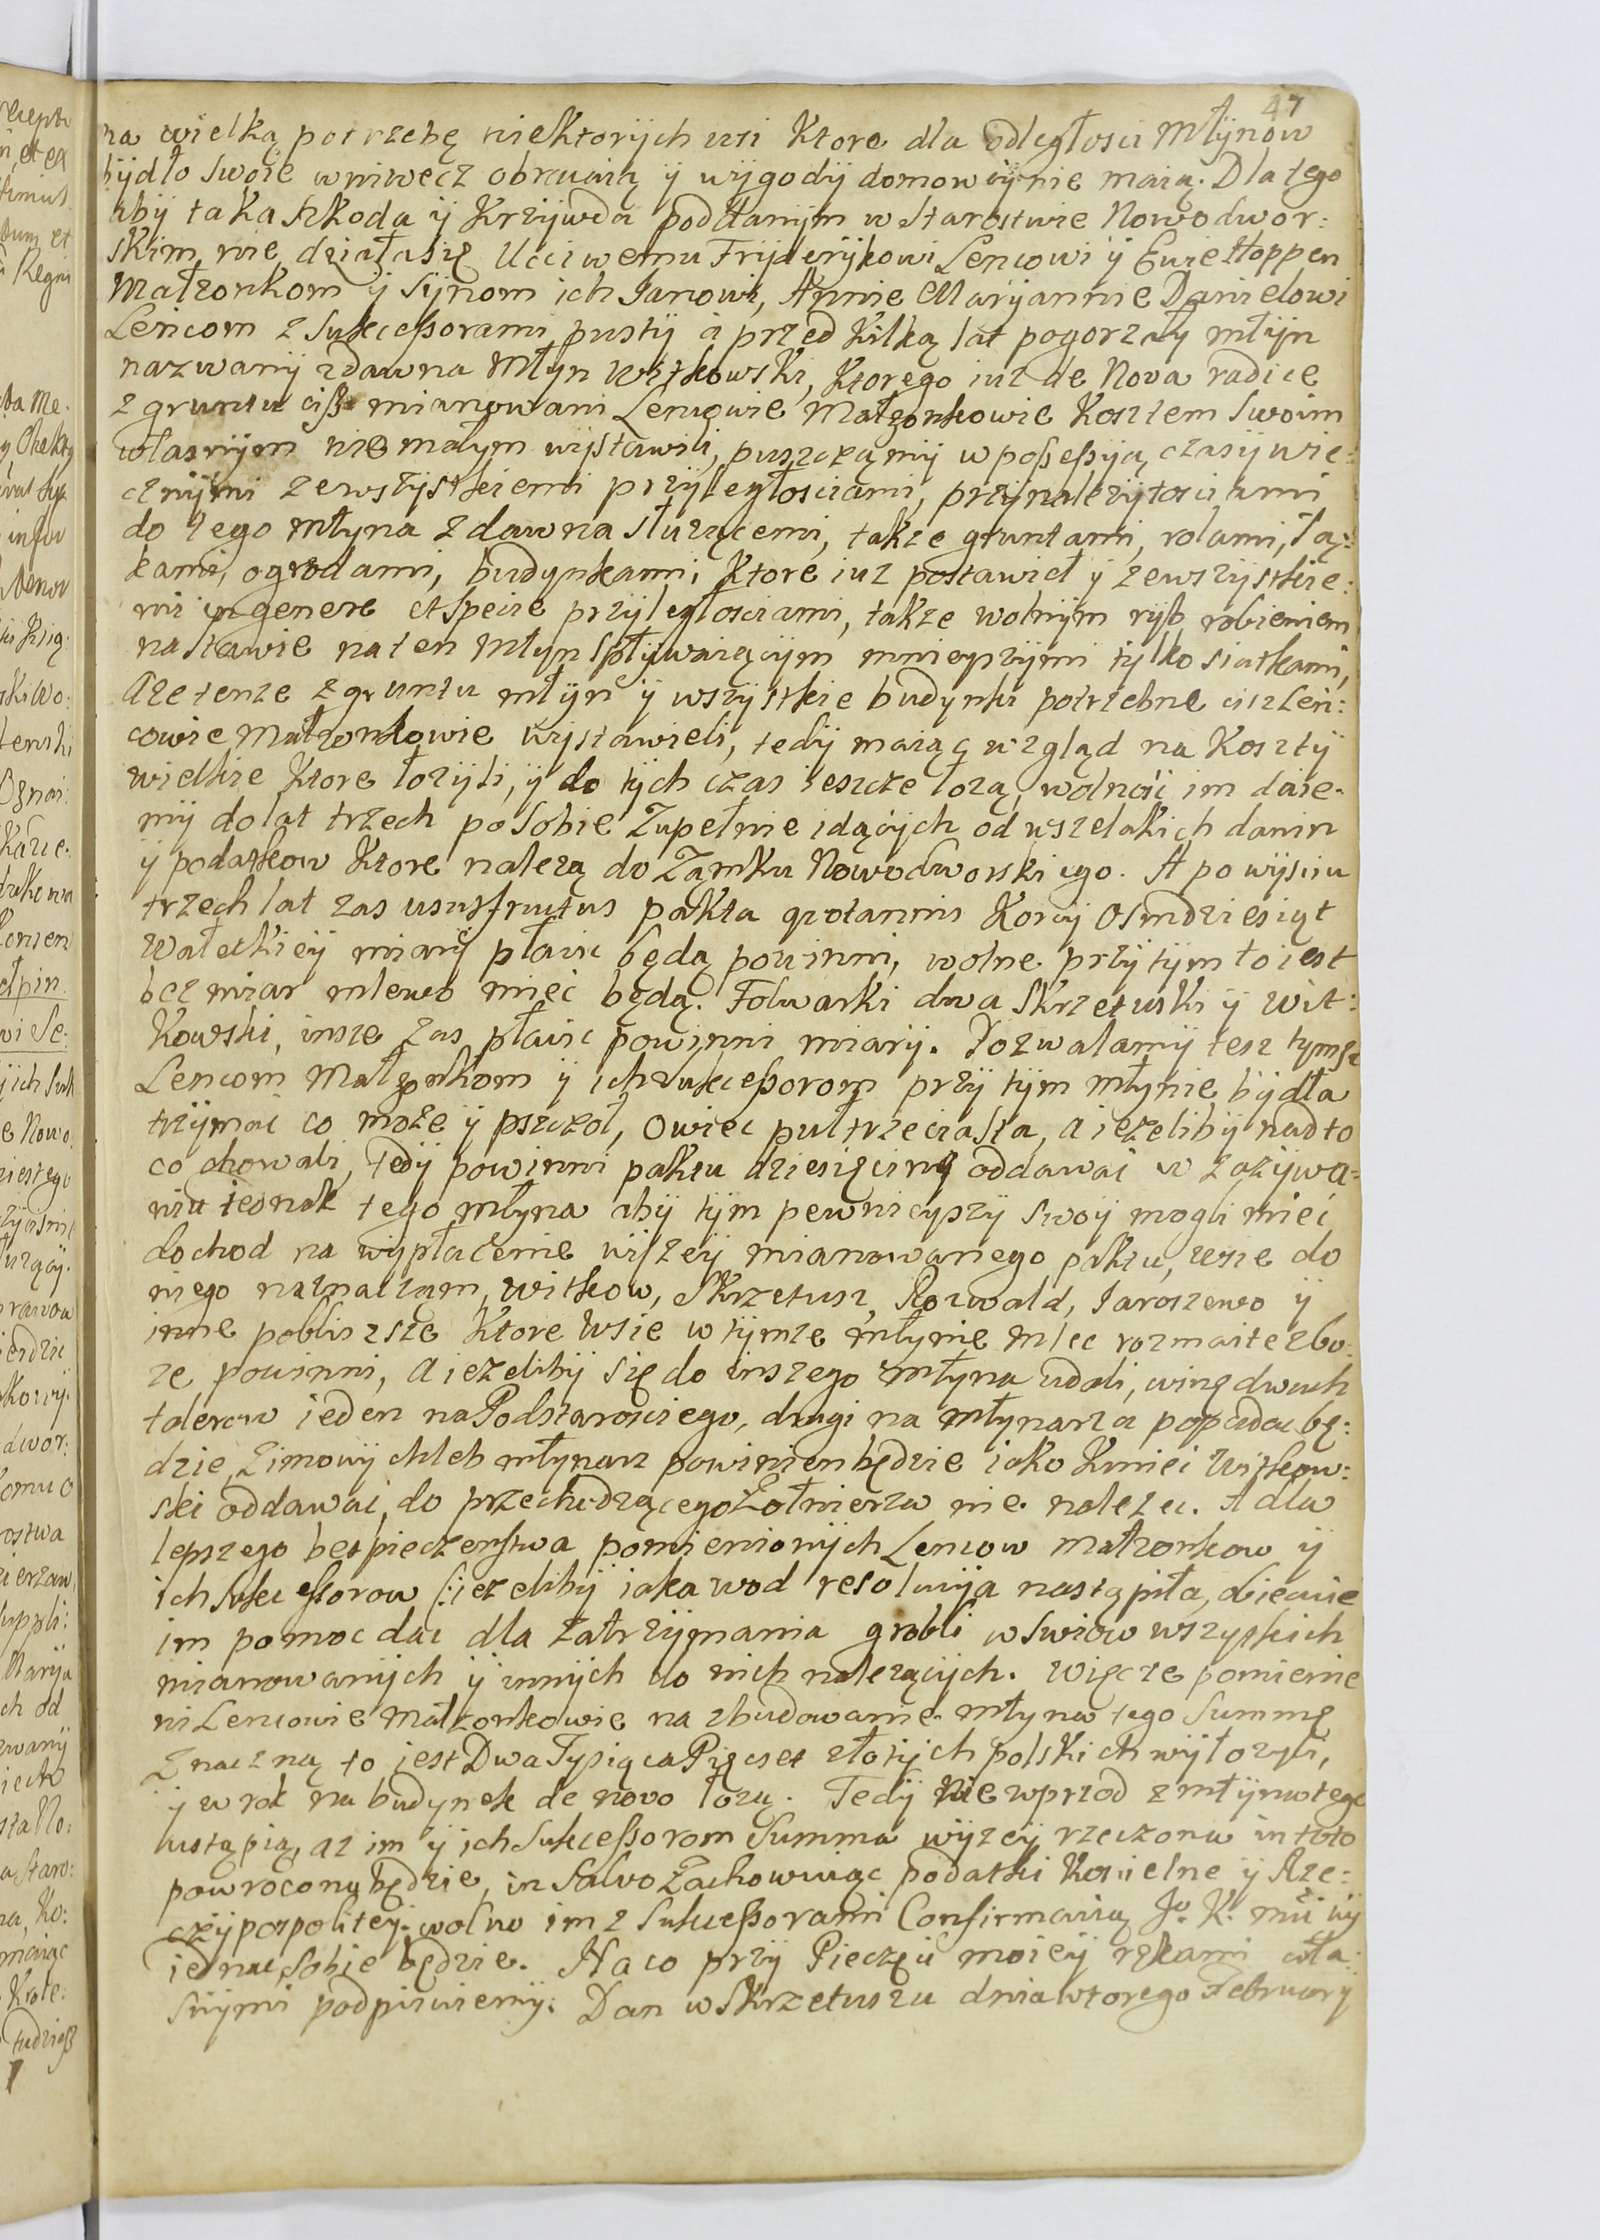 47
na wielką potrzebę niektorÿch wsi Ktore dla odległosci Młÿnow
bÿdło Swoie wniwecz obracaią ÿ wÿgodÿ domowÿ nie maią. Dla tego
abÿ taka szkoda ÿ Krzÿwda poddanÿm w Starostwie Nowodwor:
skim nie działa się Ucciwemu Frÿderÿkowi Lencowi ÿ Ewie Hoppen
Małzonkom ÿ Sÿnom ich Janowi, Annie Marÿannie Danielowi
Lencom z Sukceßorami pustÿ a przed Kilką lat pogorzałÿ młÿn
nazwanÿ zdawna Młÿn Witkowski, Ktorego iuz de Nova radice
z gruntu ciß mianowani Lencowie Małzonkowie Kosztem Swoim
własnÿm nie małym wÿstawili, puszczamÿ w poßeßÿą czasÿ wie:
cznÿmi ze wszÿstkiemi przÿległosciami, przÿnalezÿtosciami
do tego młÿna zdawna słuzącemi, takze gruntami, rolami, łą:
kami, ogrodami, budÿnkami, Ktore iuz postawieł ÿ ze wszÿstkie:
mi in genere et specie przÿległosciami, takze wolnÿm rÿb robieniem
na stawie na ten Młÿn spłÿwaiącÿm mnieÿszÿmi tÿlko siatkami,
A ze tenze z gruntu młÿn ÿ wszÿstkie budÿnki potrzebne cisz Len:
cowie Małzonkowie wÿstawieli, tedÿ maiąc wzgląd na Kosztÿ
wielkie Ktore łozÿli, ÿ do tÿch czas ieszcze łozą, wolnosc im daie:
mÿ do lat trzech po Sobie Zupełnie idącÿch od wszelakich danin
ÿ podatkow Ktore nalezą do Zamku Nowodworskiego. A po wÿsciu
trzech lat zas ususfructus pakta quotannis Korcÿ Osmdziesiąt
Wałeckieÿ miarÿ płacic będą powinni, wolne przÿ tÿm to iest
bez miar mlewo miec będą. Folwarki dwa Skrzetuski ÿ Wit:
Kowski, insze zas płacic powinni miarÿ. Pozwalamÿ tesz tymsz
Lencom Małzonkom ÿ ich sukceßorom przÿ tÿm młÿnie bÿdła
trzÿmac co moze ÿ pszczoł, Owiec pułtrzeciasta, a iezelibÿ nadto
co chowali, tedÿ powinni paktu dziesięcinę oddawac w zazÿwa:
niu iednak tego młÿna abÿ tÿm pewnieÿszÿ swoÿ mogli miec
dochod na wÿpłacenie wÿszeÿ mianowanego paktu, wsie do
niego naznaczam, Witkow, Skrzetusz, Rozwald, Jaroszewo ÿ
inne poblizsze Ktore wsie w tÿmze młÿnie mlec rozmaite zbo:
ze powinni, a iezelibÿ się do inszego młÿna udali, winę dwuch
talerow ieden na Podstarosciego, drugi na młÿnarza popadac bę:
dzie, Zimowÿ chleb młÿnarz powinien będzie iako Kmiec Witkow:
ski oddawac, do przechodzącego Zołnierza nie nalezec. A dla
lepszego bezpieczenstwa pomienionÿch Lencow małzonkow ÿ
ich Sukceßorow (:iezelibÿ iaka wod resolucÿja nastąpiła, obiecuie
im pomoc dac dla zatrzÿmania grobli w swiow wszystkich
mianowanÿch ÿ innÿch do nich nalezącÿch. Więc ze pomienie
ni Lencowie Małzonkowie na zbudowanie młÿna tego Summę
Znaczną to jest Dwa Tysiąca Pięcset złotÿch polskich wÿłozÿli,
ÿ w rok na budÿnek de novo łozą. Tedÿ Nie wprzod z młÿna tego
ustąpią, az im ÿ ich Sukceßorom Summa wÿzeÿ rzeczona in toto
powrocona będzie, in Salvo Zachowuiąc podatki Koscielne ÿ Rze:
czÿpospoliteÿ. wolno im z Sukceßorami Confirmacią J. K. mci
iednac Sobie będzie. Na co przÿ Pieczęci moieÿ rękami wła:
snÿmi podpisuiemÿ: Dan w Skrzetuszu dnia wtorego February